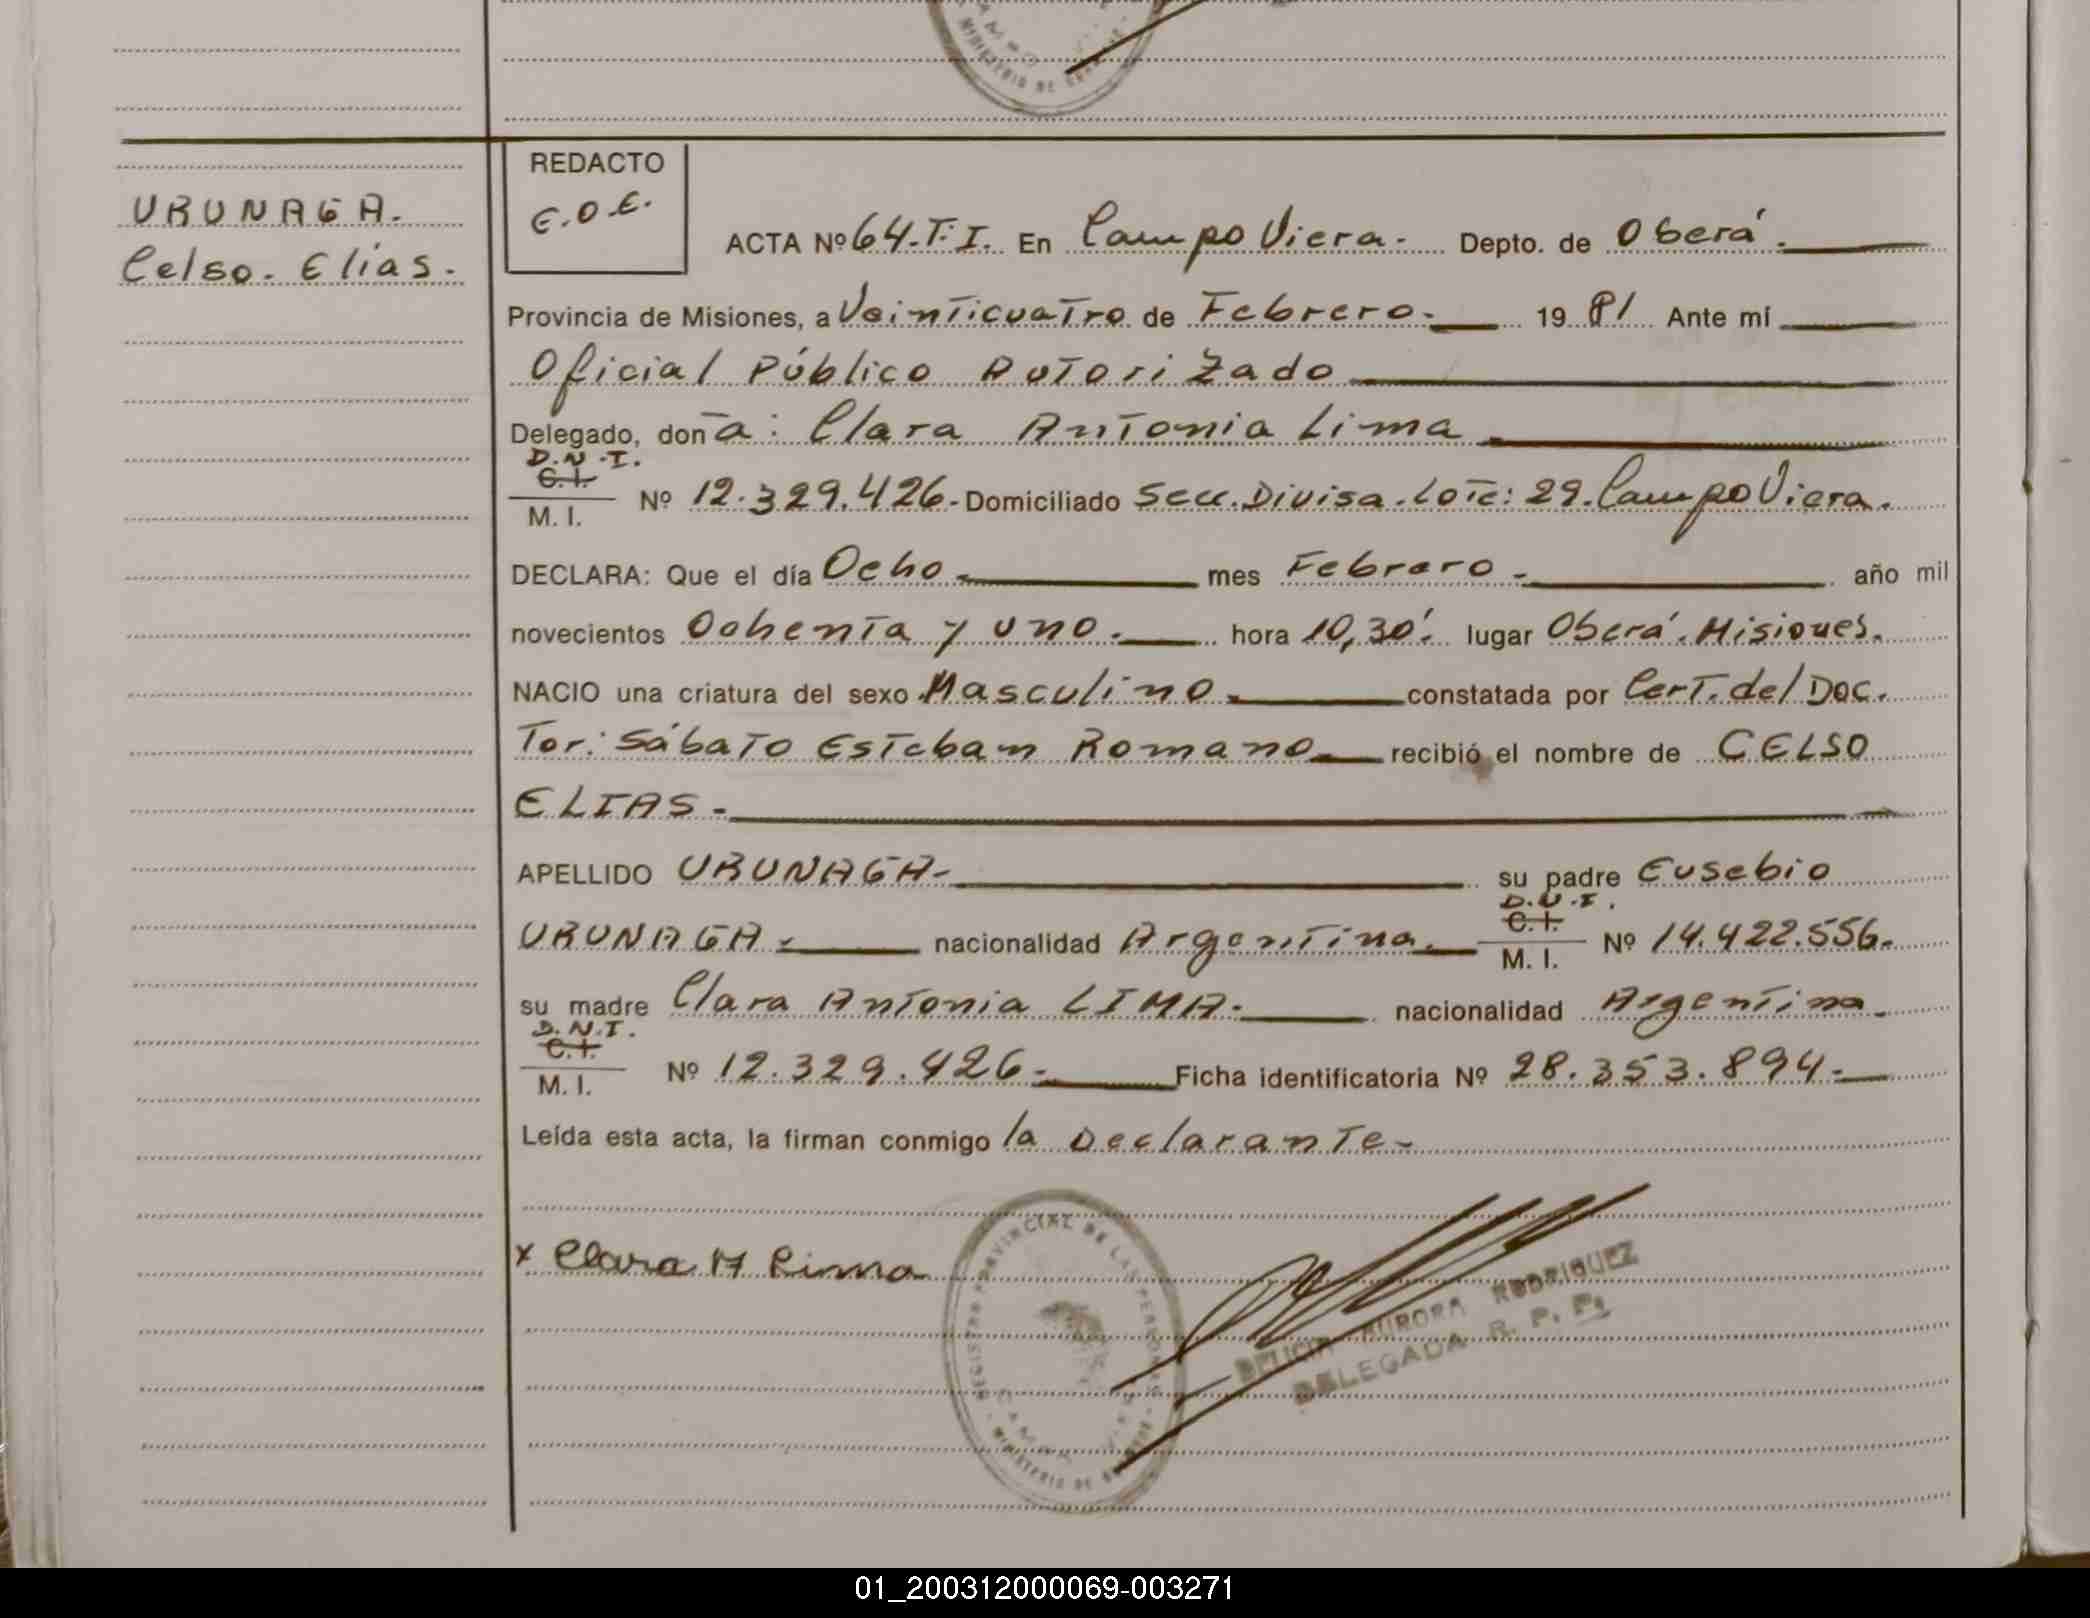 REDACTO
E.O.E.
URUNAGA.
Celso. Elías.
ACTA Nº 64.T.I. En Campo Viera. Depto. de Oberá.
Provincia de Misiones, a Veinticuatro de Febrero. 19 81 Ante mí
Oficial Público Autorizado
Delegado, don a: Clara Antonia Lima
D.N.I.
C.I.
M. I. Nº 12.329.426- Domiciliado Secc. Divisa. Lote: 29. Campo Viera.
DECLARA: Que el día Ocho mes Febrero - año mil
novecientos Ochenta y uno. hora 10,30'. lugar Oberá. Misiones.
NACIO una criatura del sexo Masculino. constatada por Cert. del Doc.
Tor: Sábato Esteban Romano recibió el nombre de CELSO
ELIAS.-
APELLIDO URUNAGA- su padre Eusebio
D.N.I.
C.I.
URUNAGA nacionalidad Argentina. M. I. Nº 14.422.556.
su madre Clara Antonia LIMA. nacionalidad Argentina.
D.N.I.
C.I.
M. I. Nº 12.329.426- Ficha identificatoria Nº 28.353.894-
Leída esta acta, la firman conmigo la Declarante-
x Clara A Lima
REGISTRO PROVINCIAL DE LAS PERSONAS - MINISTERIO DE
AURORA RODRIGUEZ
DELEGADA R. P. P.
01_200312000069-003271